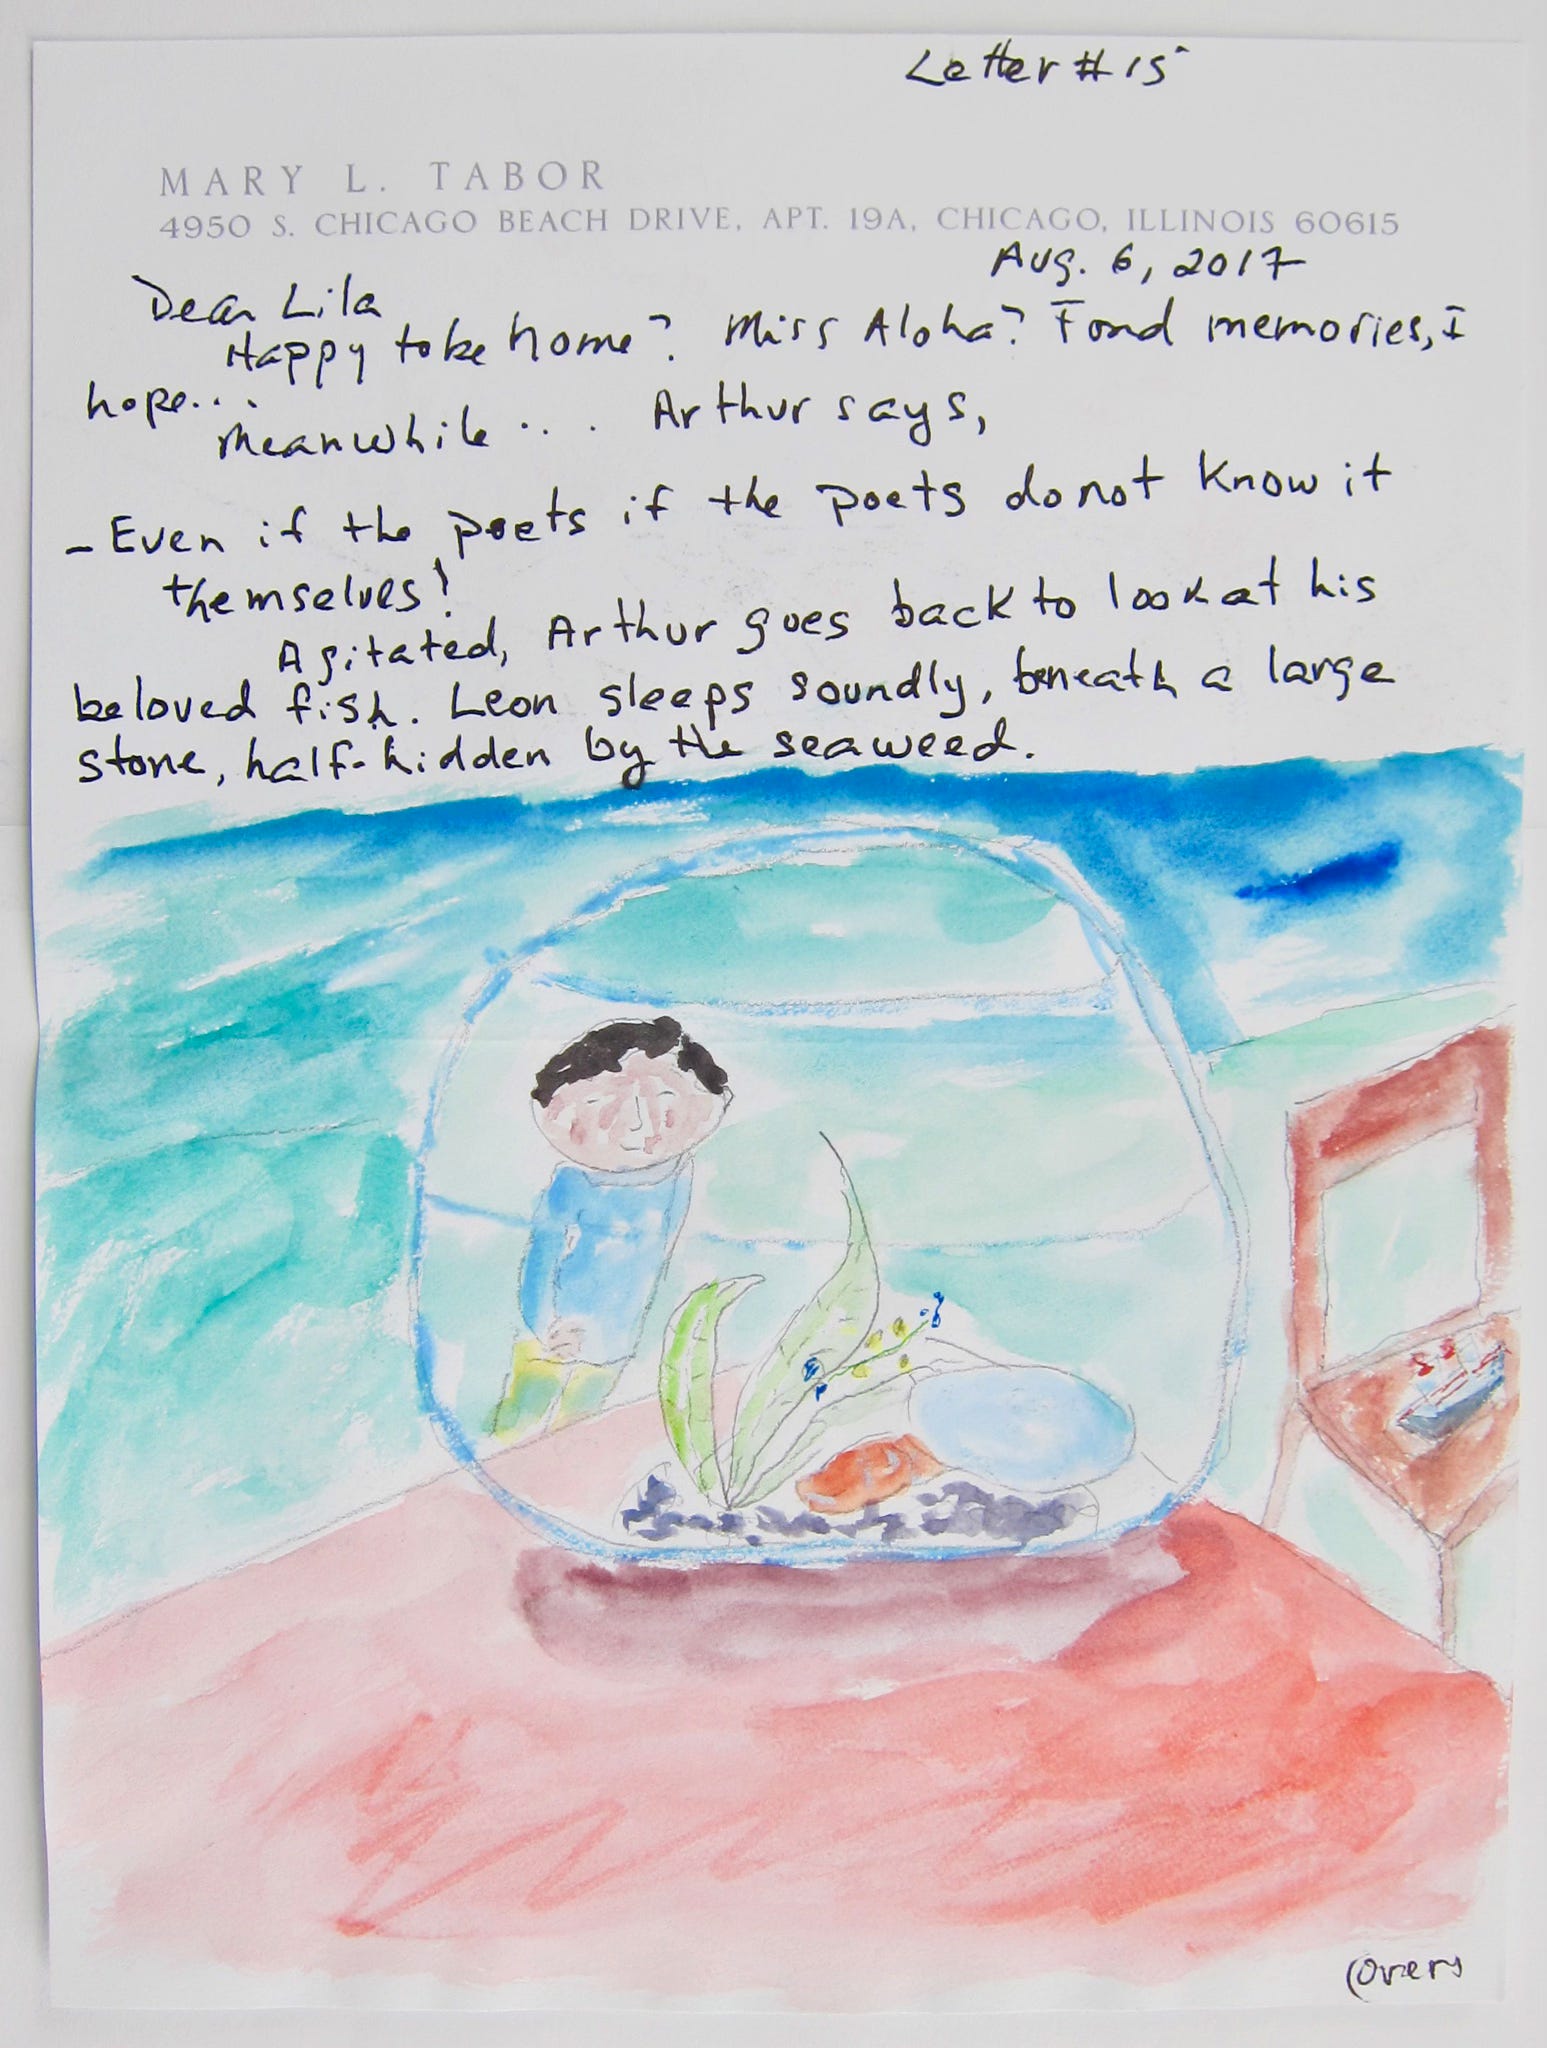 Letter #15
MARY L. TABOR
4950 S. CHICAGO BEACH DRIVE, APT. 19A, CHICAGO, ILLINOIS 60615
Aug. 6, 2017
Dear Lila
Happy to be home? Miss Aloha? Fond memories, I
hope...
Meanwhile... Arthur says,
- Even if the poets if the poets do not know it
themselves!
Agitated, Arthur goes back to look at his
beloved fish. Leon sleeps soundly, beneath a large
stone, half-hidden by the seaweed.
(over)